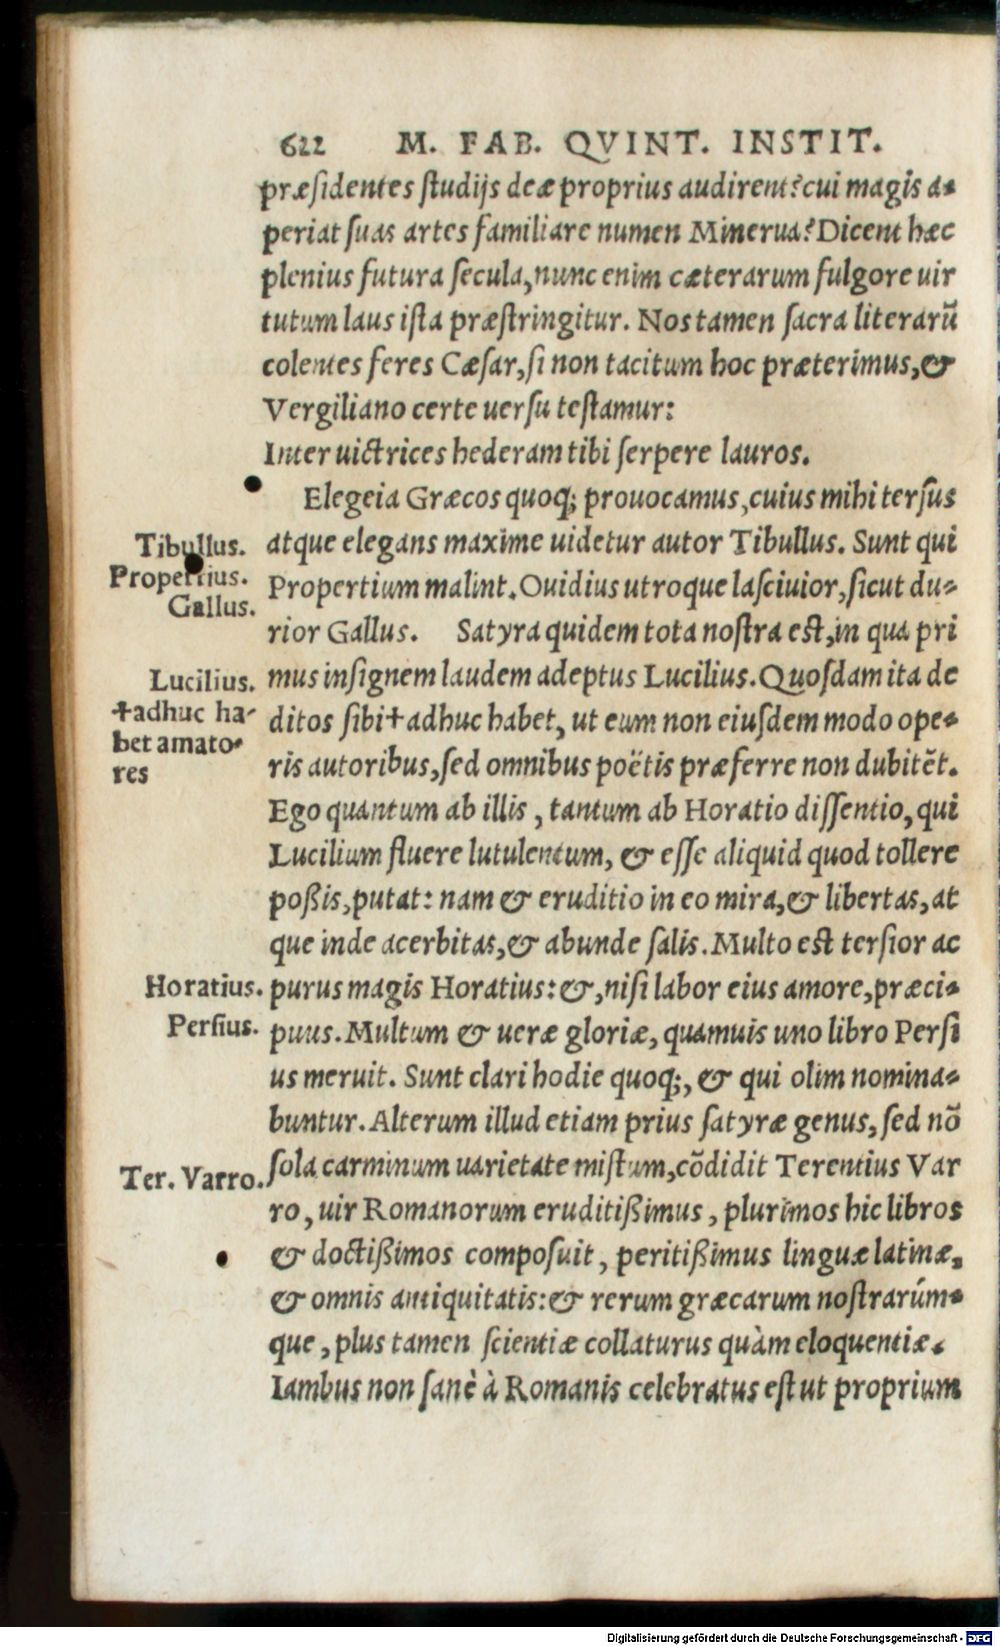 622 M. FAB. QVINT. INSTIT.
præſidentes ſtudijs deæ proprius audirent? cui magis a-
periat ſuas artes familiare numen Minerua? Dicent hæc
plenius futura ſecula, nunc enim cæterarum fulgore uir
tutum laus iſta præſtringitur. Nos tamen ſacra literarũ
colentes feres Cæſar, ſi non tacitum hoc præterimus, &
Vergiliano certe uerſu teſtamur:
Inter uictrices hederam tibi ſerpere lauros.
Elegeia Græcos quoq; prouocamus, cuius mihi terſus
Tibullus.
atque elegans maxime uidetur autor Tibullus. Sunt qui
Propertius.
Propertium malint. Ouidius utroque laſciuior, ſicut du-
Gallus.
rior Gallus. Satyra quidem tota noſtra eſt, in qua pri
Lucilius.
mus inſignem laudem adeptus Lucilius. Quoſdam ita de
†adhuc ha-
ditos ſibi † adhuc habet, ut eum non eiuſdem modo ope-
bet amato-
ris autoribus, ſed omnibus poëtis præferre non dubitẽt.
res
Ego quantum ab illis, tantum ab Horatio diſſentio, qui
Lucilium fluere lutulentum, & eſſe aliquid quod tollere
poßis, putat: nam & eruditio in eo mira, & libertas, at
que inde acerbitas, & abunde ſalis. Multo eſt terſior ac
Horatius.
purus magis Horatius: &, niſi labor eius amore, præci-
Perſius.
puus. Multum & ueræ gloriæ, quamuis uno libro Perſi
us meruit. Sunt clari hodie quoq;, & qui olim nomina-
buntur. Alterum illud etiam prius ſatyræ genus, ſed nõ
Ter. Varro.
ſola carminum uarietate miſtum, cõdidit Terentius Var
ro, uir Romanorum eruditißimus, plurimos hic libros
& doctißimos compoſuit, peritißimus linguæ latinæ,
& omnis antiquitatis: & rerum græcarum noſtrarúm-
que, plus tamen ſcientiæ collaturus quàm eloquentiæ.
Iambus non ſanè à Romanis celebratus eſt ut proprium
Digitalisierung gefördert durch die Deutsche Forschungsgemeinschaft - DFG